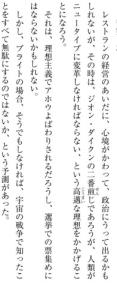 レストランの経営のあいだに、心境がかわって、政治にうって出るかも
しれないが、その時は、ジオン・ダイクンの二番煎じであろうが、人類が
ニュータイプに変革しなければならない、という高邁な理想をかかげるこ
とになろう。
　それは、理想主義でアホウよばわりされるだろうし、選挙での票集めに
はならないかもしれない。
　しかし、ブライトの場合、そうでもしなければ、宇宙の戦争で知ったこ
とをすべて無駄にするのではないか、という予測があった。